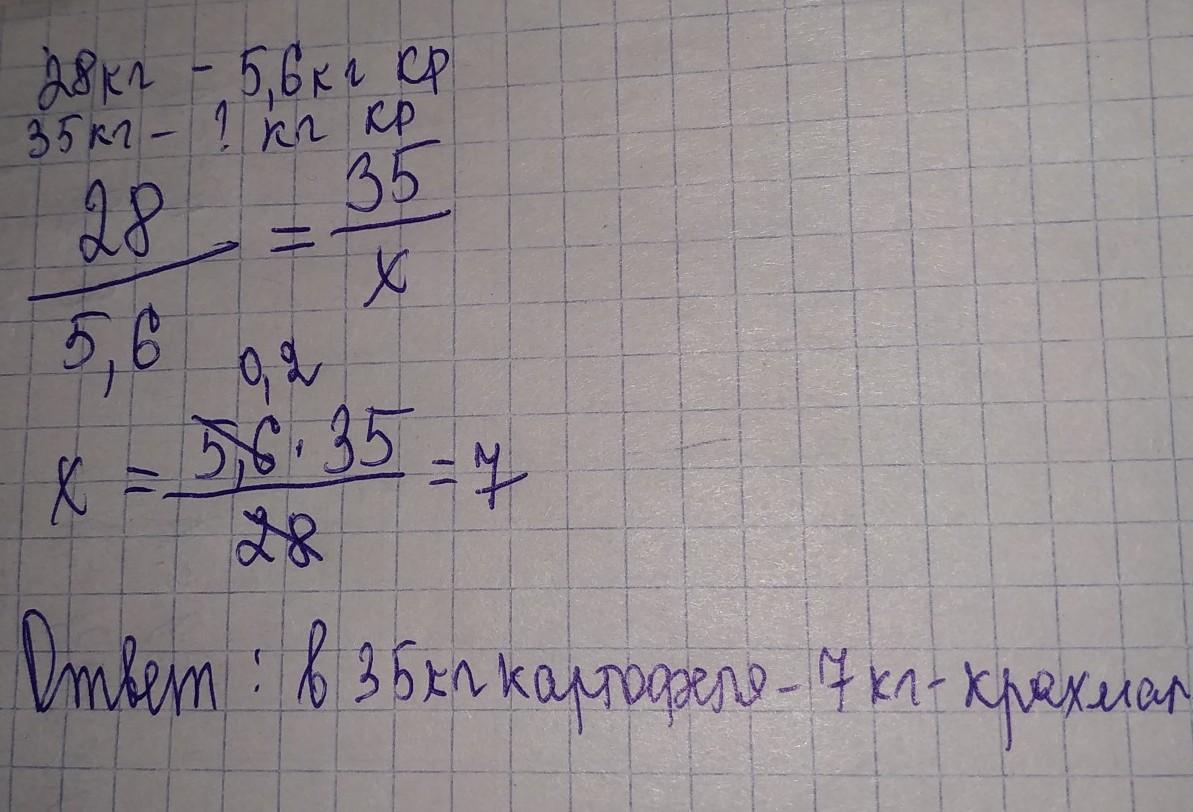 28кг - 5,6кг кр
35кг - ? кг кр
28/5,6 = 35/х
0,2
х = 5,6 · 35/28 = 7
Ответ: в 35кг картофеля - 7 кг - крахмал